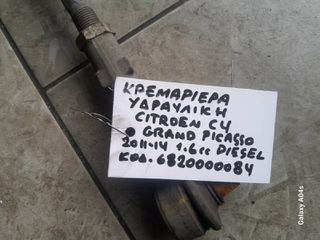 ΚΡΕΜΑΡΙΕΡΑ
ΥΔΡΑΥΛΙΚΗ
CITROEN C4
GRAND PICASSO
2011-14 1.6cc DIESEL
ΚΩΔ. 6820000084
Galaxy A04s